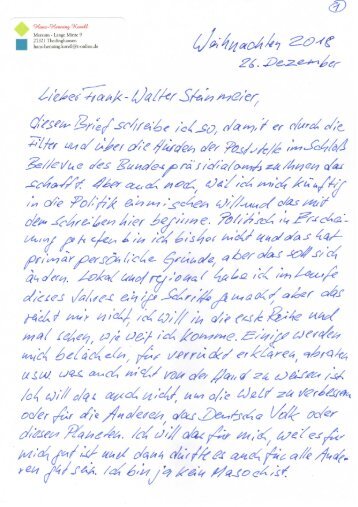 ①
Hans-Henning Kandel
27321 Thedinghausen
Weihnachten 2018
26. Dezember
Lieber Frank-Walter Steinmeier,
diesen Brief schreibe ich so, damit er durch die
Filter und über die Hürden der Poststelle im Schloß
Bellevue des Bundespräsidialamts zu Ihnen das
schafft. Aber auch noch, weil ich mich künftig
in die Politik einmischen will und das mit
dem schreiben hier beginne. Politisch in Erschei-
nung getreten bin ich bisher nicht und das hat
primär persönliche Gründe, aber das soll sich
ändern. Lokal und regional habe ich im Laufe
dieses Jahres einige Schritte gemacht, aber das
reicht mir nicht, ich will in die erste Reihe und
mal sehen, wie weit ich komme. Einige werden
mich belächeln, für verrückt erklären, abraten
usw. was auch nicht von der Hand zu weisen ist
Ich will das auch nicht, um die Welt zu verbessern
oder für die Anderen, das Deutsche Volk oder
diesen Planeten. Ich will das für mich, weil es für
mich gut ist und dann dürfte es auch für alle Ande-
ren gut sein. Ich bin ja kein Masochist.